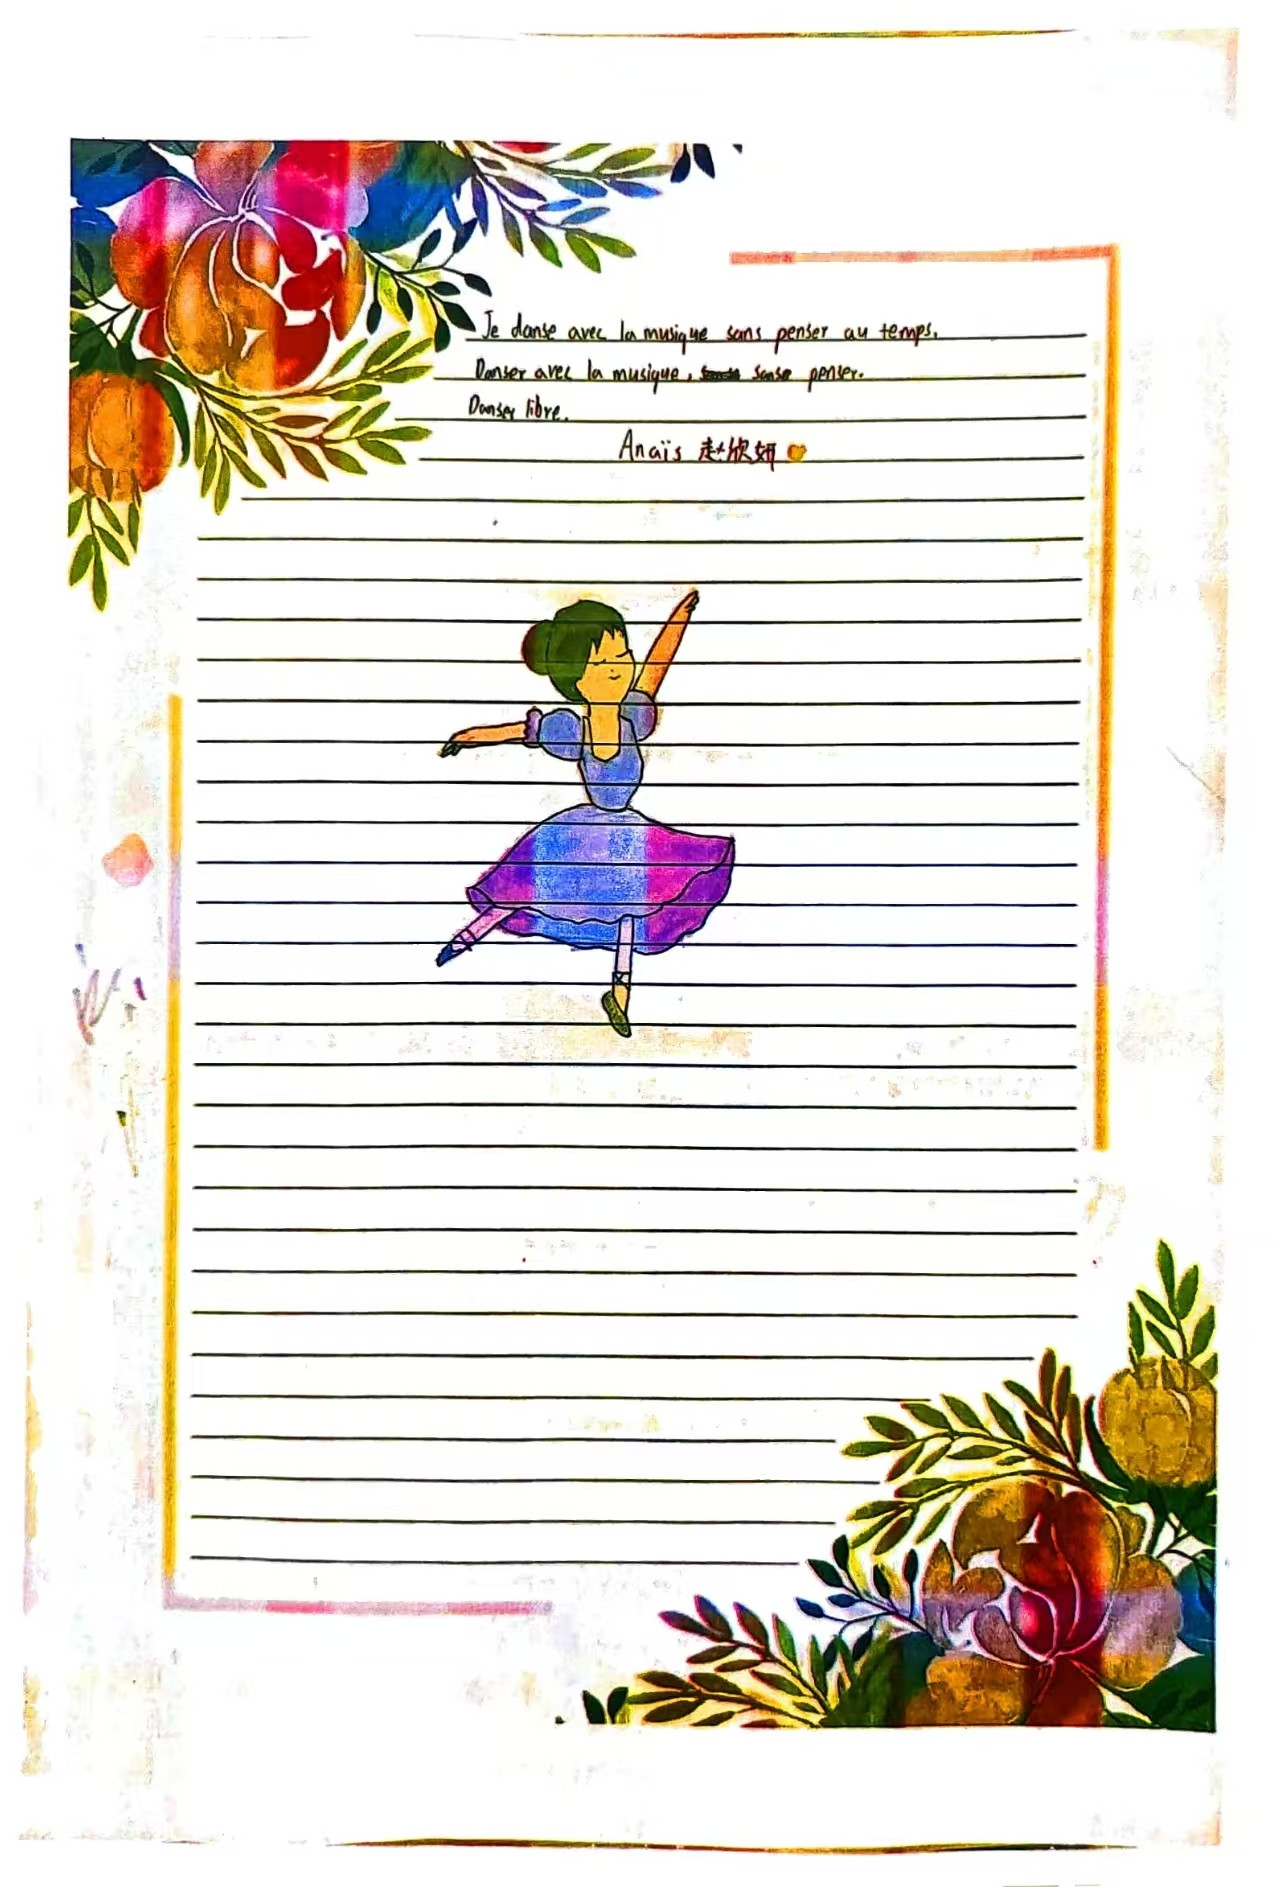 Je danse avec la musique sans penser au temps.
Danser avec la musique, sans penser.
Danser libre.
Anaïs 赵欣妍